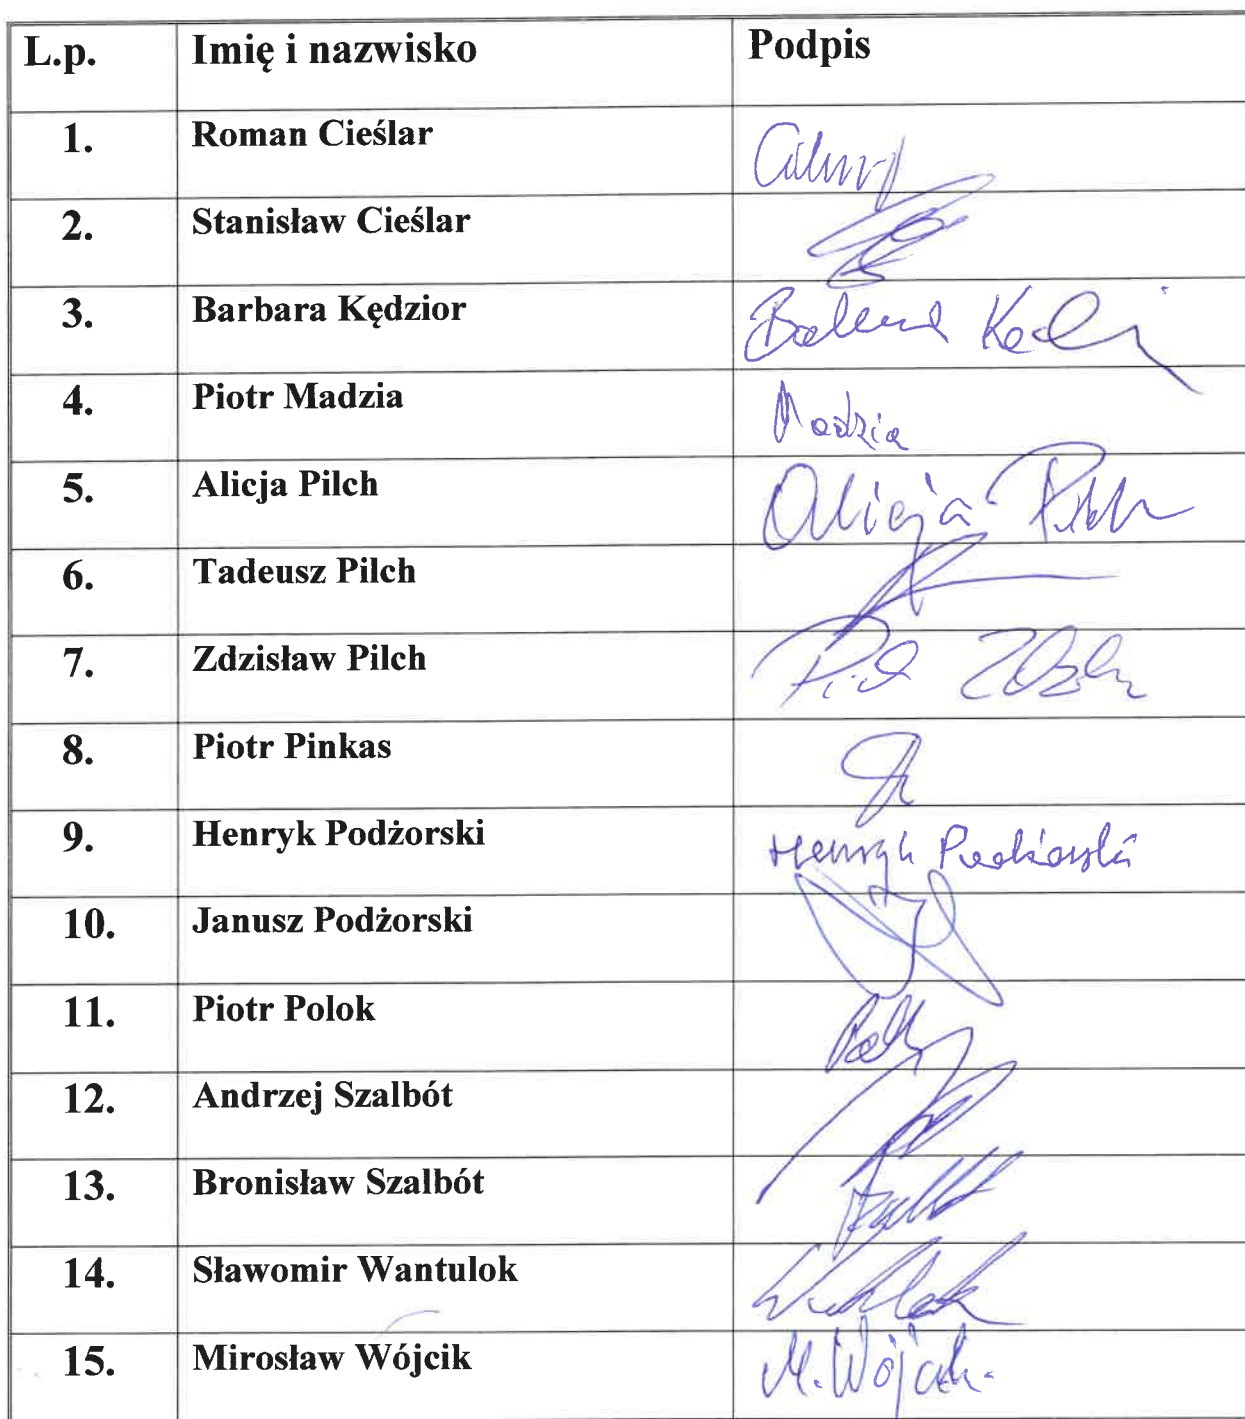 L.p. Imię i nazwisko Podpis
1. Roman Cieślar
2. Stanisław Cieślar
3. Barbara Kędzior
4. Piotr Madzia Madzia
5. Alicja Pilch Alicja Pilch
6. Tadeusz Pilch
7. Zdzisław Pilch
8. Piotr Pinkas
9. Henryk Podżorski Henryk Podżorski
10. Janusz Podżorski
11. Piotr Polok
12. Andrzej Szalbót
13. Bronisław Szalbót
14. Sławomir Wantulok
15. Mirosław Wójcik M. Wójcik